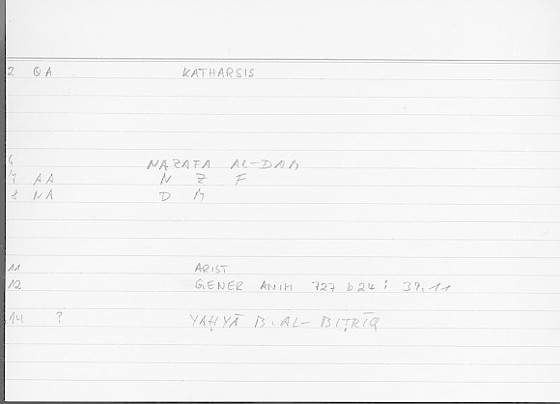 2 QA KATHARSIS
6 NAẒAFA AL-DAM
7 AA N Ẓ F
8 NA D M
11 ARIST
12 GENER ANIM 727 b24 : 39,11
14 ? YAḤYĀ B. AL-BIṬRĪQ